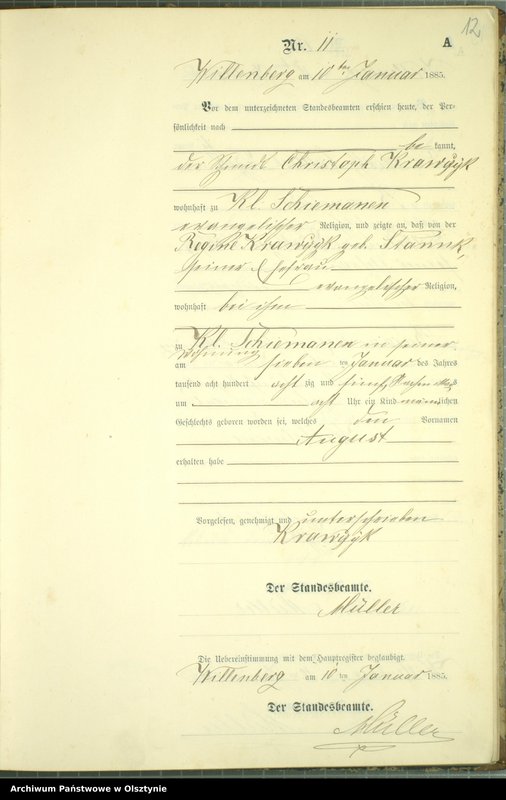 12
Nr. 11 A
Willenberg am 10ten Januar 1885.
Vor dem unterzeichneten Standesbeamten erschien heute, der Per-
sönlichkeit nach
be kannt,
der Christoph Krawzyk
wohnhaft zu Kl. Schiemanen
evangelischer Religion, und zeigte an, daß von der
Regine Krawzyk geb. Stannk,
seiner Ehefrau
evangelischer Religion,
wohnhaft bei ihm
zu Kl. Schiemanen in seiner
Wohnung
am sieben ten Januar des Jahres
tausend acht hundert acht zig und fünf, Nachmittags
um acht Uhr ein Kind männlichen
Geschlechts geboren worden sei, welches den Vornamen
August
erhalten habe
Vorgelesen, genehmigt und unterschrieben
Krawzyk
Der Standesbeamte.
Müller
Die Uebereinstimmung mit dem Hauptregister beglaubigt.
Willenberg am 10 ten Januar 1885.
Der Standesbeamte.
Müller
Archiwum Państwowe w Olsztynie